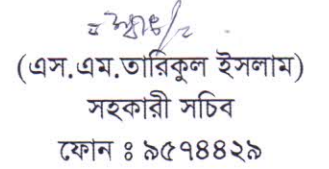 (এস.এম.তারিকুল ইসলাম)
সহকারী সচিব
ফোন ঃ ৯৫৭৪৪২৯